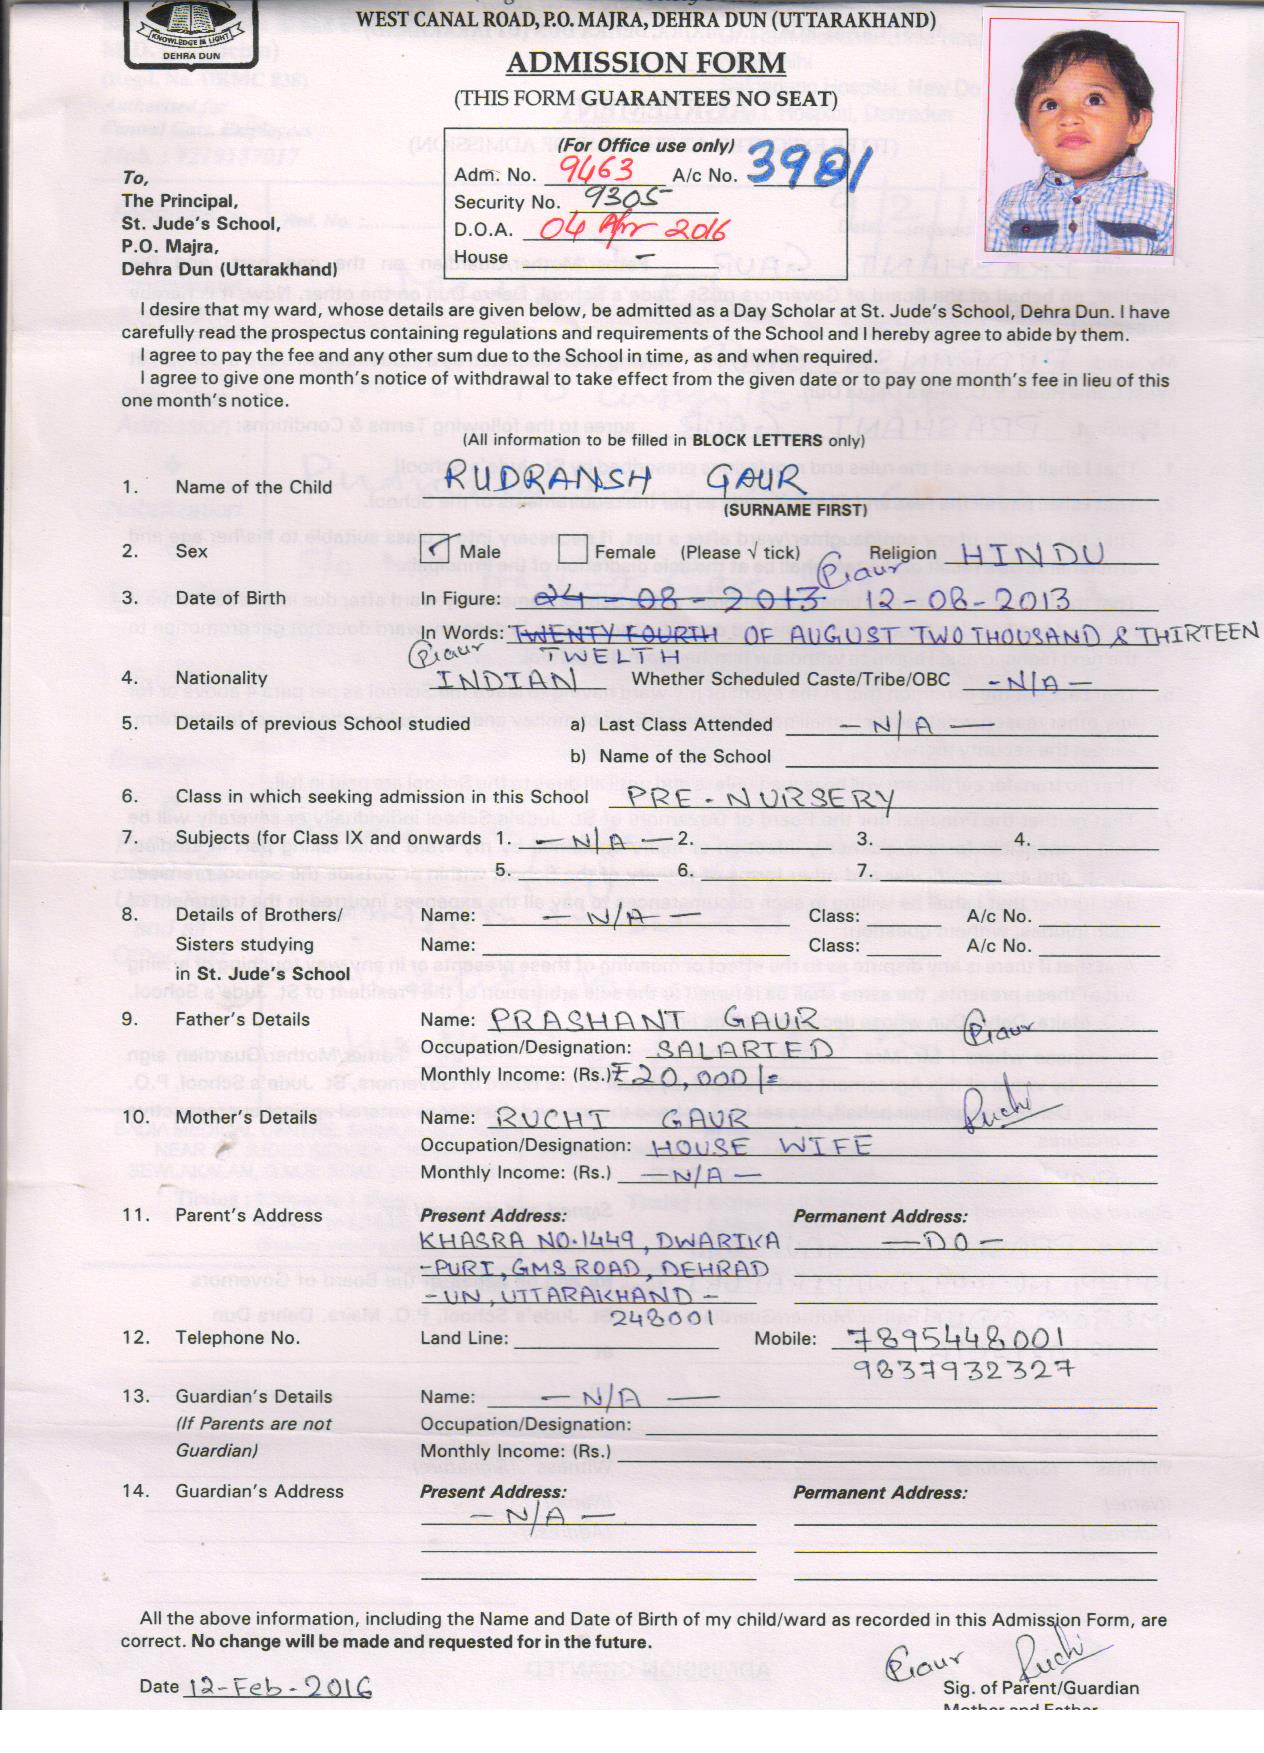 KNOWLEDGE IS LIGHT
DEHRA DUN
WEST CANAL ROAD, P.O. MAJRA, DEHRA DUN (UTTARAKHAND)
ADMISSION FORM
(THIS FORM GUARANTEES NO SEAT)
(For Office use only)
Adm. No. 9463 A/c No. 3981
Security No. 9305
D.O.A. 04 Apr 2016
House -
To,
The Principal,
St. Jude's School,
P.O. Majra,
Dehra Dun (Uttarakhand)
I desire that my ward, whose details are given below, be admitted as a Day Scholar at St. Jude's School, Dehra Dun. I have
carefully read the prospectus containing regulations and requirements of the School and I hereby agree to abide by them.
I agree to pay the fee and any other sum due to the School in time, as and when required.
I agree to give one month's notice of withdrawal to take effect from the given date or to pay one month's fee in lieu of this
one month's notice.
(All information to be filled in BLOCK LETTERS only)
1. Name of the Child RUDRANSH GAUR
(SURNAME FIRST)
2. Sex Male Female (Please √ tick) Religion HINDU
3. Date of Birth In Figure: 24 - 08 - 2013 Gaur 12-08-2013
In Words: TWENTY FOURTH OF AUGUST TWO THOUSAND & THIRTEEN
Gaur TWELTH
4. Nationality INDIAN Whether Scheduled Caste/Tribe/OBC - N/A -
5. Details of previous School studied a) Last Class Attended - N/A -
b) Name of the School
6. Class in which seeking admission in this School PRE - NURSERY
7. Subjects (for Class IX and onwards 1. - N/A - 2. 3. 4.
5. 6. 7.
8. Details of Brothers/ Name: - N/A - Class: A/c No.
Sisters studying Name: Class: A/c No.
in St. Jude's School
9. Father's Details Name: PRASHANT GAUR Gaur
Occupation/Designation: SALARIED
Monthly Income: (Rs.) ₹20,000/=
10. Mother's Details Name: RUCHI GAUR Ruchi
Occupation/Designation: HOUSE WIFE
Monthly Income: (Rs.) - N/A -
11. Parent's Address Present Address: Permanent Address:
KHASRA NO.1449, DWARIKA - DO -
-PURI, GMS ROAD, DEHRAD
-UN, UTTARAKHAND -
248001
12. Telephone No. Land Line: Mobile: 7895448001
9837932327
13. Guardian's Details Name: - N/A -
(If Parents are not Occupation/Designation:
Guardian) Monthly Income: (Rs.)
14. Guardian's Address Present Address: Permanent Address:
- N/A -
All the above information, including the Name and Date of Birth of my child/ward as recorded in this Admission Form, are
correct. No change will be made and requested for in the future.
Gaur Ruchi
Date 12-Feb-2016 Sig. of Parent/Guardian
Mother and Father